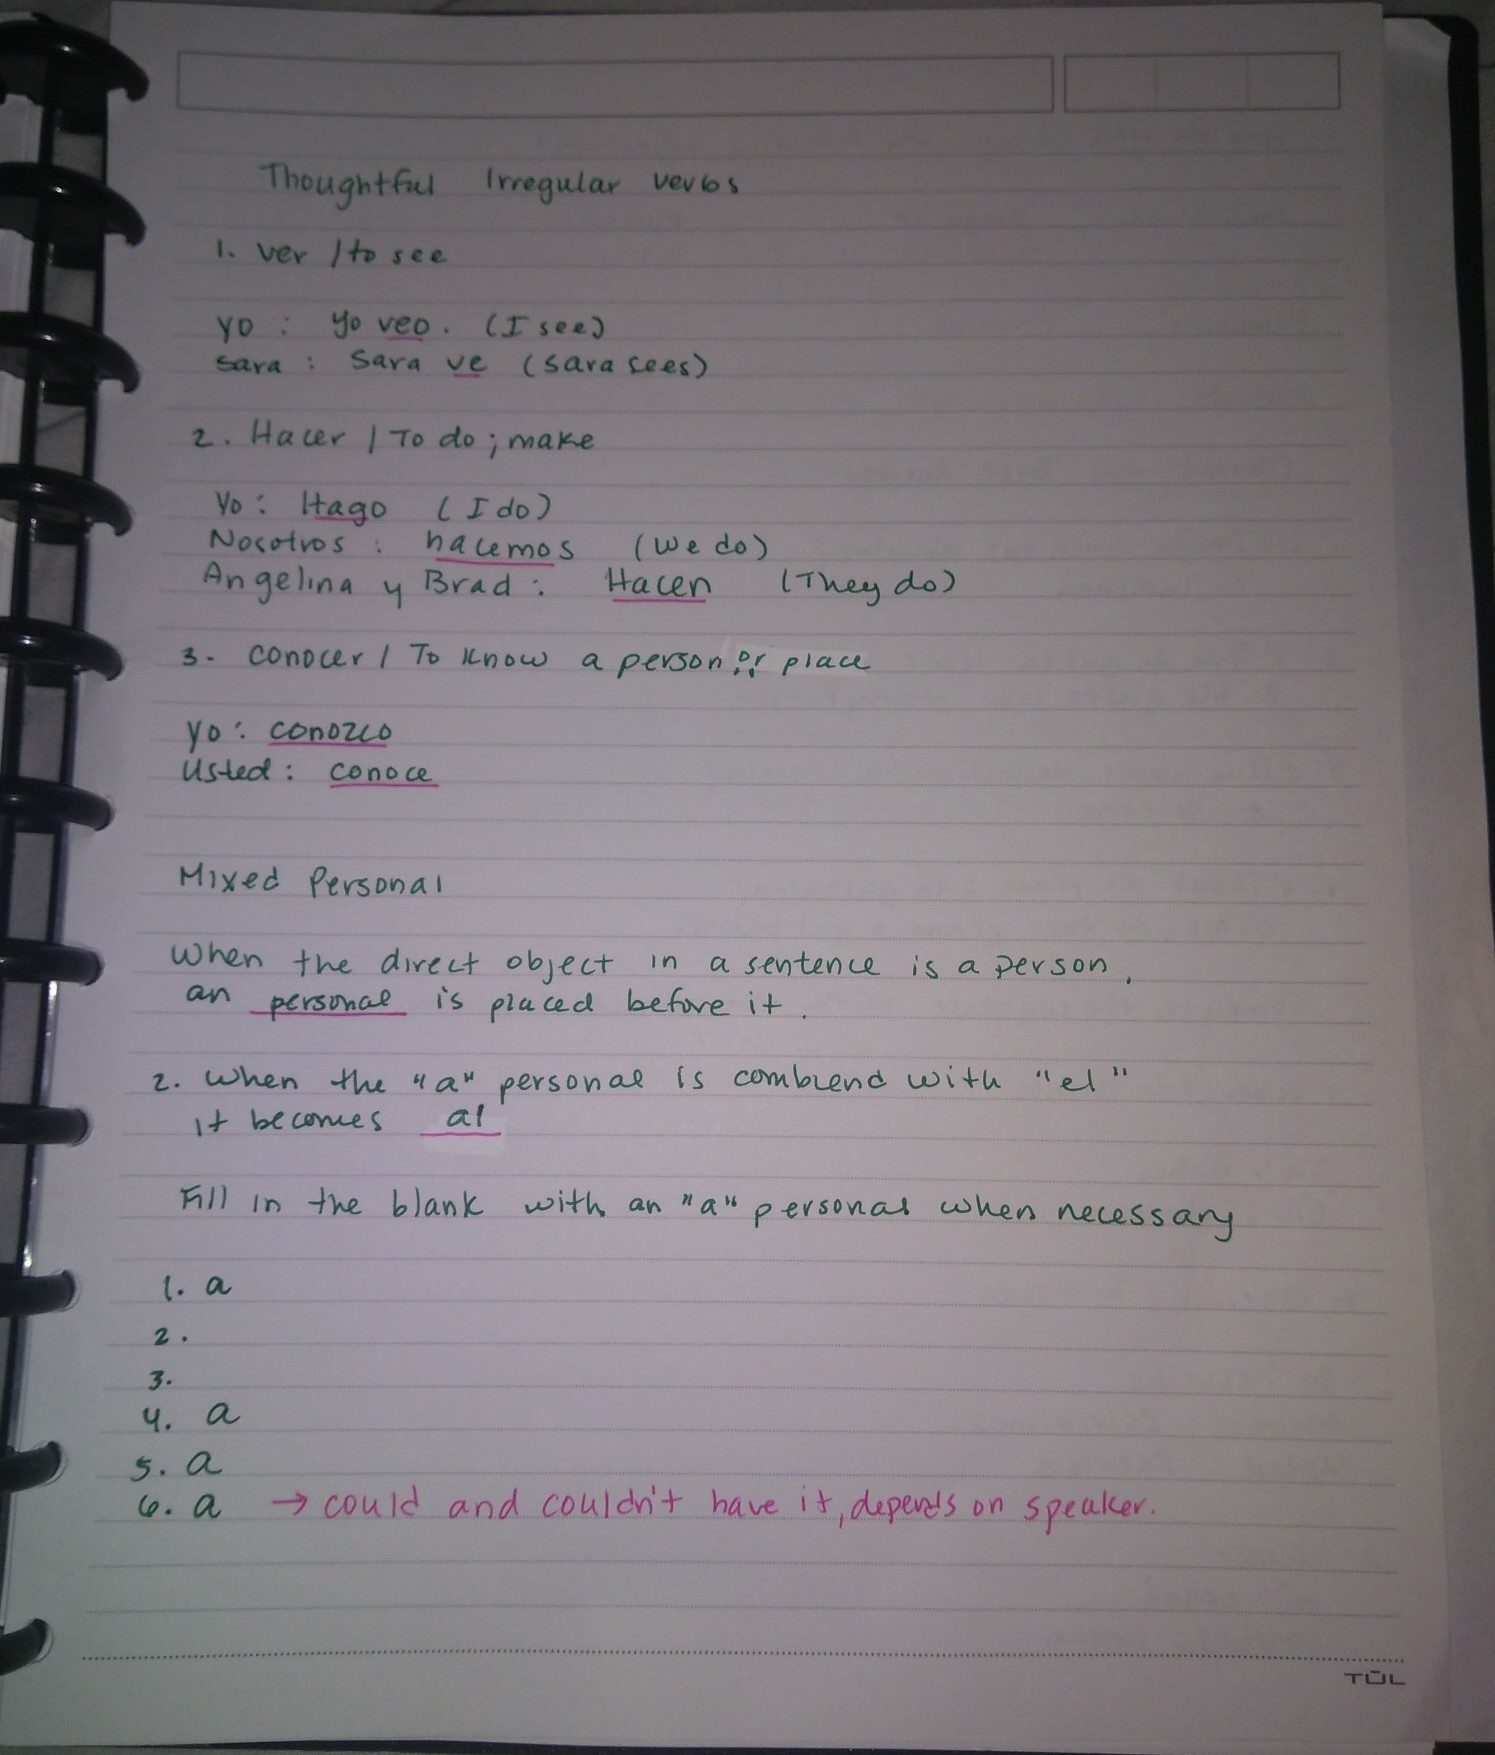 Thoughtful Irregular verbs
1. ver / to see
yo : yo veo. (I see)
Sara : Sara ve (Sara sees)
2. Hacer / To do ; make
Yo : Hago (I do)
Nosotros : hacemos (We do)
Angelina y Brad : Hacen (They do)
3. conocer / To know a person or place
yo : conozco
Usted : conoce
Mixed Personal
When the direct object in a sentence is a person,
an personal is placed before it.
2. When the "a" personal is combiend with "el"
it becomes al
Fill in the blank with an "a" personal when necessary
1. a
2.
3.
4. a
5. a
6. a → could and couldn't have it, depends on speaker.
TUL